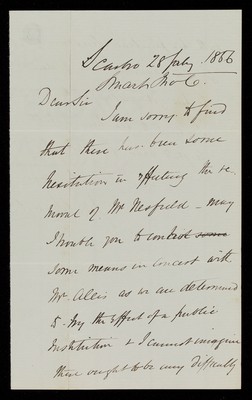 Scarbro 28 July 1866
Dear Sir
I am sorry to find
that there has been some
hesitation in effecting the re
moval of Mr Nesfield - may
I trouble you to some
some means in concert with
Mr Allis as we are determined
to try the Effect of a public
Institution & I cannot imagine
there ought to be any difficulty